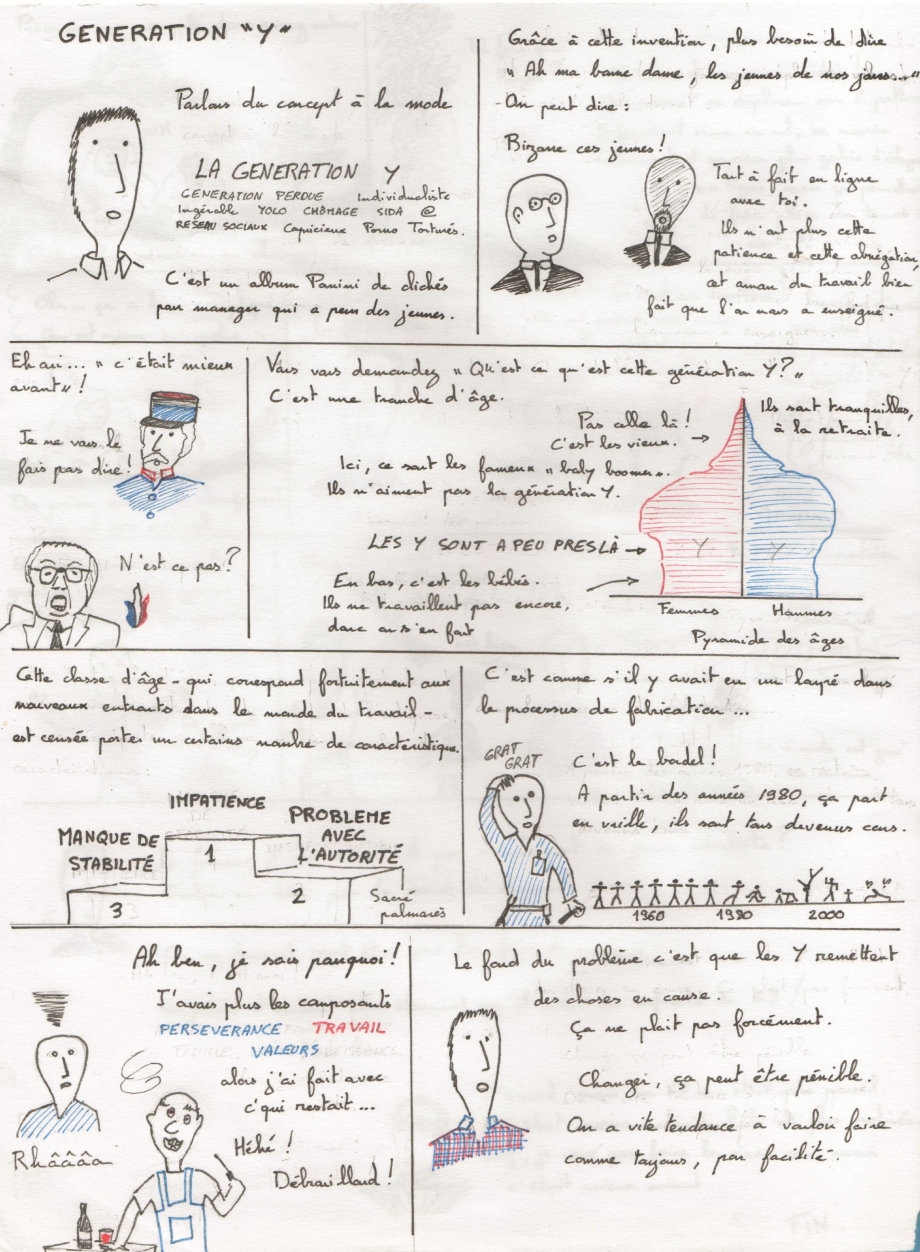 GENERATION "Y"
Parlons du concept à la mode
LA GENERATION Y
GENERATION PERDUE Individualiste
Ingérable YOLO CHÔMAGE SIDA @
RESEAU SOCIAUX Capricieux Porno Torturés.
C'est un album Panini de clichés
pour manager qui a peur des jeunes.
Grâce à cette invention, plus besoin de dire
" Ah ma bonne dame, les jeunes de nos jours..."
On peut dire :
Bizarre ces jeunes !
Tout à fait en ligne
avec toi.
Ils n'ont plus cette
patience et cette abnégation,
cet amour du travail bien
fait que l'on nous a enseigné.
Eh oui... " c'était mieux
avant" !
Je ne vous le
fais pas dire !
N'est ce pas ?
Vous vous demandez " Qu'est ce qu'est cette génération Y ? "
C'est une tranche d'âge.
Pas celle là !
C'est les vieux.
Ils sont tranquilles,
à la retraite.
Ici, ce sont les fameux " baby boomer".
Ils n'aiment pas la génération Y.
LES Y SONT A PEU PRES LÀ
Y Y
En bas, c'est les bébés.
Ils ne travaillent pas encore,
donc on s'en fout
Femmes Hommes
Pyramide des âges
Cette classe d'âge - qui correspond fortuitement aux
nouveaux entrants dans le monde du travail -
est censée porter un certains nombre de caractéristique.
IMPATIENCE
PROBLEME
AVEC
L'AUTORITÉ
MANQUE DE
STABILITÉ
1
2
3
Sacré
palmarès
C'est comme s'il y avait eu un loupé dans
le processus de fabrication...
GRAT
GRAT
C'est le bordel !
A partir des années 1980, ça part
en vrille, ils sont tous devenus cons.
1960 1980 2000
Ah ben, je sais pourquoi !
J'avais plus les composants
PERSEVERANCE TRAVAIL
VALEURS
alors j'ai fait avec
c'qui restait...
Héhé !
Débrouillard !
Rhâââa
Le fond du problème c'est que les Y remettent
des choses en cause.
Ça ne plait pas forcément.
Changer, ça peut être pénible.
On a vite tendance à vouloir faire
comme toujours, par facilité.